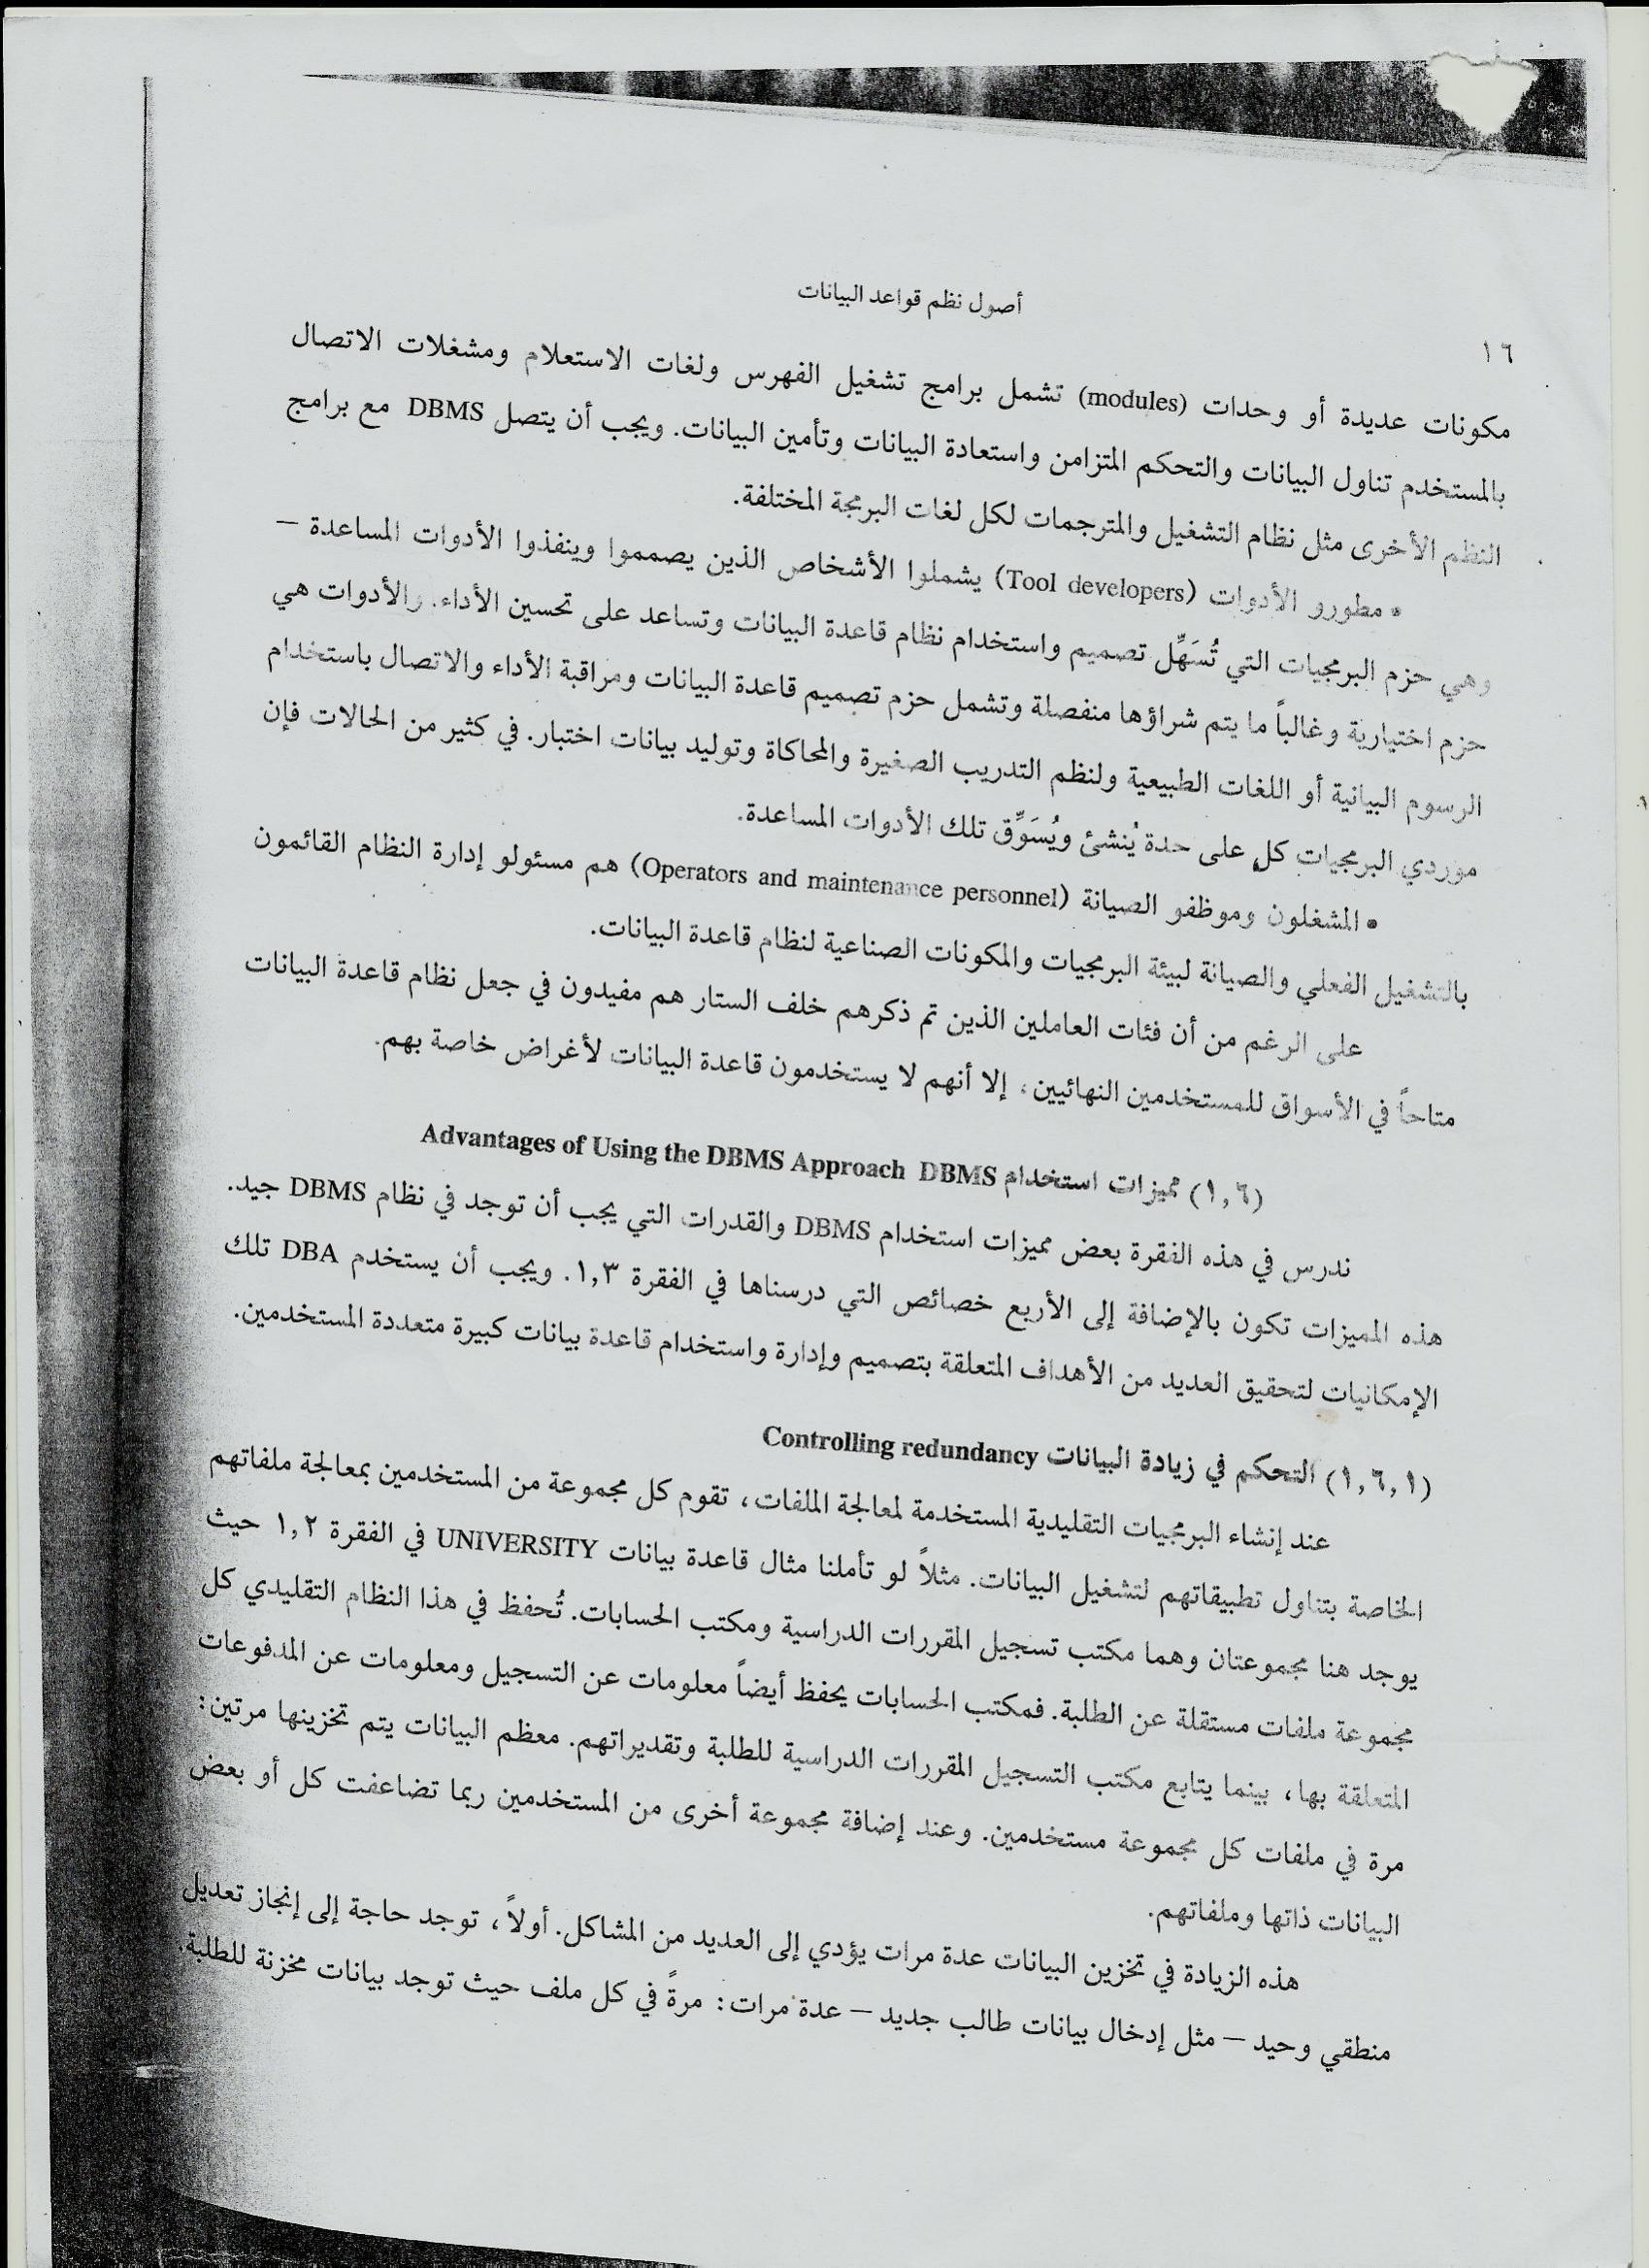 أصول نظم قواعد البيانات
١٦
مكونات عديدة أو وحدات (modules) تشمل برامج تشغيل الفهرس ولغات الاستعلام ومشغلات الاتصال
بالمستخدم تناول البيانات والتحكم المتزامن واستعادة البيانات وتأمين البيانات. ويجب أن يتصل DBMS مع برامج
النظم الأخرى مثل نظام التشغيل والمترجمات لكل لغات البرمجة المختلفة.
• مطورو الأدوات (Tool developers) يشملوا الأشخاص الذين يصمموا وينفذوا الأدوات المساعدة –
وهي حزم البرمجيات التي تُسَهِّل تصميم واستخدام نظام قاعدة البيانات وتساعد على تحسين الأداء. والأدوات هي
حزم اختيارية وغالباً ما يتم شراؤها منفصلة وتشمل حزم تصميم قاعدة البيانات ومراقبة الأداء والاتصال باستخدام
الرسوم البيانية أو اللغات الطبيعية ولنظم التدريب الصغيرة والمحاكاة وتوليد بيانات اختبار. في كثير من الحالات فإن
موردي البرمجيات كل على حدة يُنشئ ويُسَوِّق تلك الأدوات المساعدة.
• المشغلون وموظفو الصيانة (Operators and maintenance personnel) هم مسئولو إدارة النظام القائمون
بالتشغيل الفعلي والصيانة لبيئة البرمجيات والمكونات الصناعية لنظام قاعدة البيانات.
على الرغم من أن فئات العاملين الذين تم ذكرهم خلف الستار هم مفيدون في جعل نظام قاعدة البيانات
متاحاً في الأسواق للمستخدمين النهائيين، إلا أنهم لا يستخدمون قاعدة البيانات لأغراض خاصة بهم.
(١,٦) مميزات استخدام DBMS Advantages of Using the DBMS Approach
ندرس في هذه الفقرة بعض مميزات استخدام DBMS والقدرات التي يجب أن توجد في نظام DBMS جيد.
هذه المميزات تكون بالإضافة إلى الأربع خصائص التي درسناها في الفقرة ١,٣. ويجب أن يستخدم DBA تلك
الإمكانيات لتحقيق العديد من الأهداف المتعلقة بتصميم وإدارة واستخدام قاعدة بيانات كبيرة متعددة المستخدمين.
(١,٦,١) التحكم في زيادة البيانات Controlling redundancy
عند إنشاء البرمجيات التقليدية المستخدمة لمعالجة الملفات، تقوم كل مجموعة من المستخدمين بمعالجة ملفاتهم
الخاصة بتناول تطبيقاتهم لتشغيل البيانات. مثلاً لو تأملنا مثال قاعدة بيانات UNIVERSITY في الفقرة ١,٢ حيث
يوجد هنا مجموعتان وهما مكتب تسجيل المقررات الدراسية ومكتب الحسابات. تُحفظ في هذا النظام التقليدي كل
مجموعة ملفات مستقلة عن الطلبة. فمكتب الحسابات يحفظ أيضاً معلومات عن التسجيل ومعلومات عن المدفوعات
المتعلقة بها، بينما يتابع مكتب التسجيل المقررات الدراسية للطلبة وتقديراتهم. معظم البيانات يتم تخزينها مرتين:
مرة في ملفات كل مجموعة مستخدمين. وعند إضافة مجموعة أخرى من المستخدمين ربما تضاعفت كل أو بعض
البيانات ذاتها وملفاتهم.
هذه الزيادة في تخزين البيانات عدة مرات يؤدي إلى العديد من المشاكل. أولاً، توجد حاجة إلى إنجاز تعديل
منطقي وحيد – مثل إدخال بيانات طالب جديد – عدة مرات: مرةً في كل ملف حيث توجد بيانات مخزنة للطلبة.